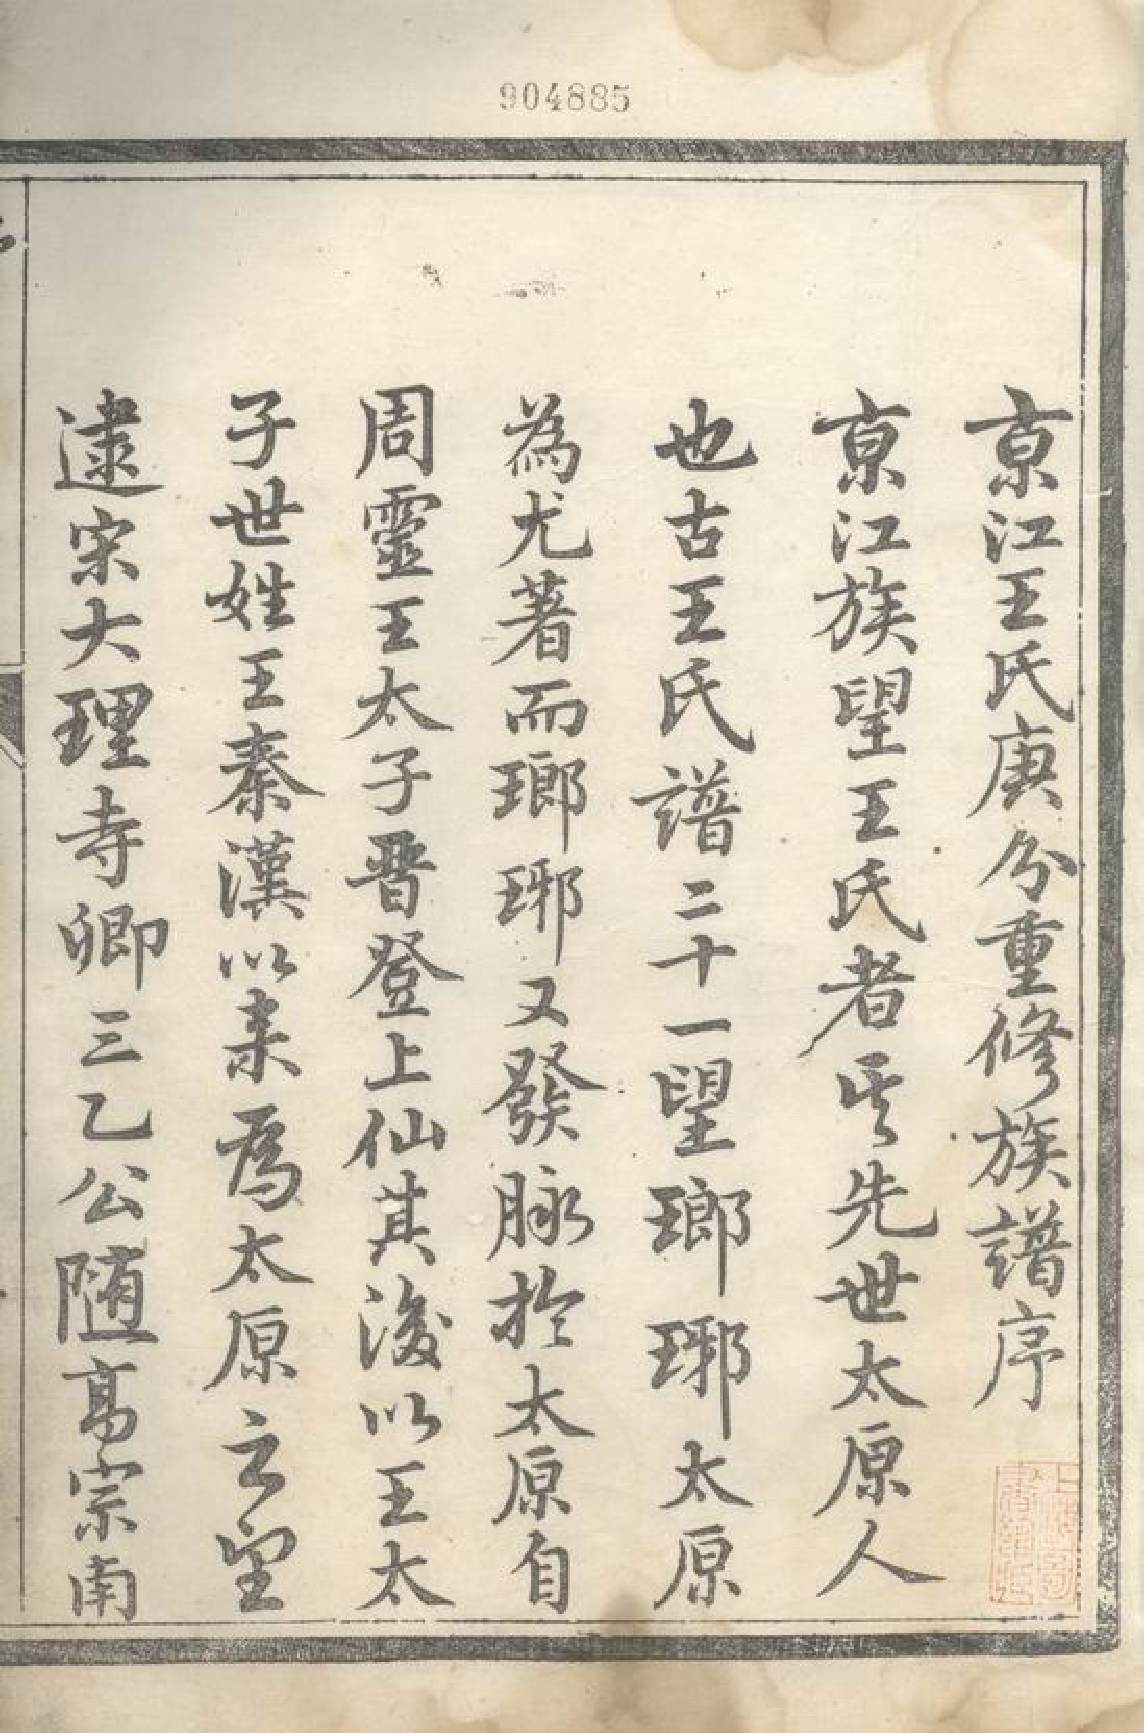 904885
京江王氏庚分重修族譜序
京江族望王氏者其先世太原人
也古王氏譜二十一望瑯琊太原
為尤著而瑯琊又發脉於太原自
周靈王太子晋登上仙其後以王太
子世姓王秦漢以来為太原之望
逮宋大理寺卿三乙公随髙宗南